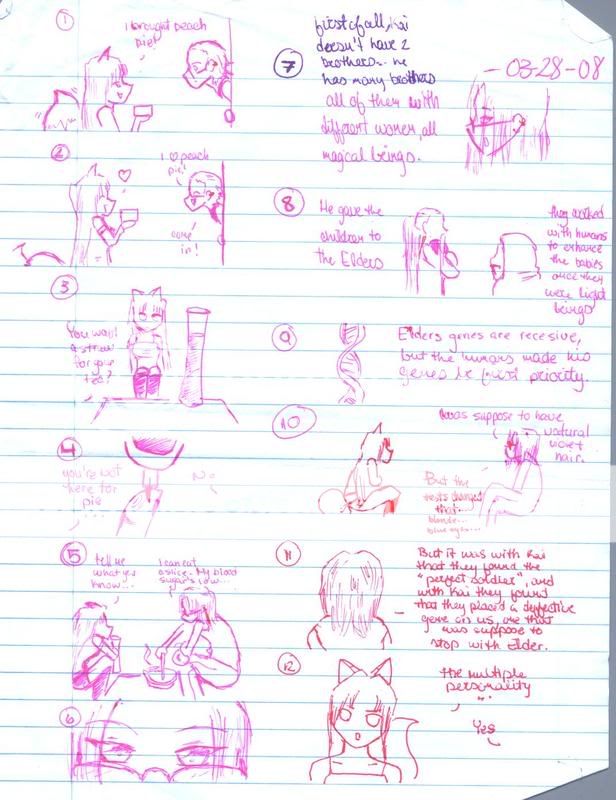 1
I brought peach
pie!
2
I ♡ peach
pie!
come
in!
3
You want
a straw
for your
tea?
4
you're not
here for
pie
No
5
tell me
what you
know...
I can eat
a slice. My blood
sugar's low...
6
7
first of all, Kai
doesn't have 2
brothers.. he
has many brothers
all of them with
different women, all
magical beings.
- 03-28-08
8
He gave the
children to
the Elders
they worked
with humans
to enhance
the babies
once they
were light
beings
9
Elders genes are recesive,
but the humans made his
genes be first priority.
10
I was suppose to have
natural
violet
hair.
But the
tests changed
that...
blonde...
blue eyes...
11
But it was with Kai
that they found the
"perfect soldier", and
with Kai they found
that they placed a deffective
gene on us, one that
was suppose to
stop with Elder.
12
the multiple
personality
Yes